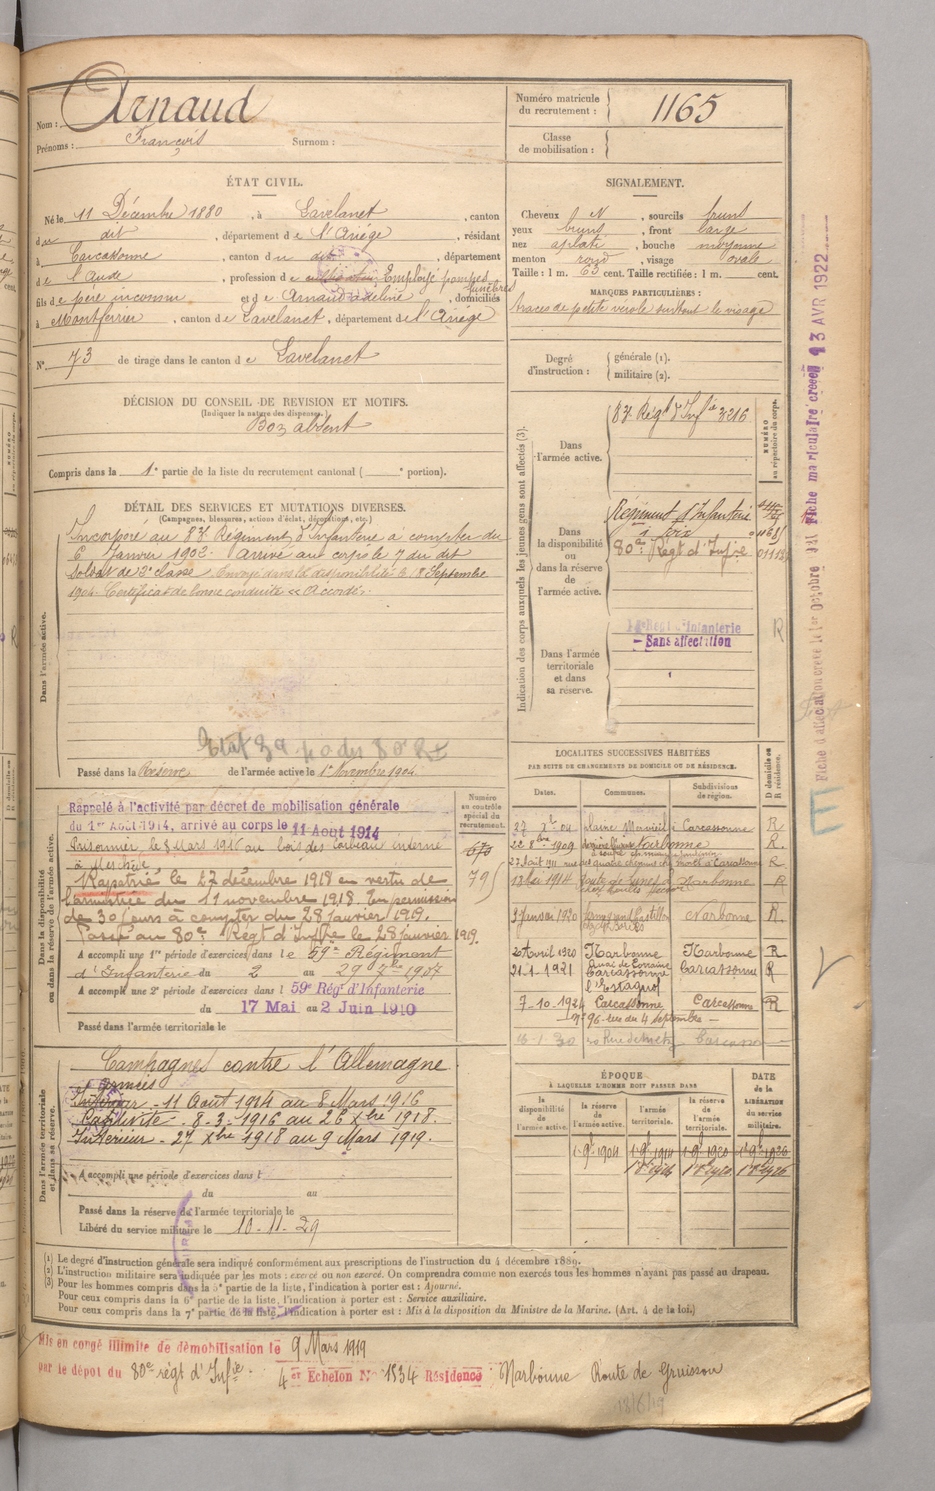 Nom : Arnaud
Prénoms : François Surnom :
Numéro matricule du recrutement : 1165
Classe de mobilisation :
ÉTAT CIVIL.
Né le 11 Décembre 1880, à Lavelanet, canton
dudit, département de l'Ariège, résidant
à Carcassonne, canton du dit, département
de l'Aude, profession de Employé pompes funèbres
fils de père inconnu et de Arnaud Adeline, domiciliés
à Montferrier, canton de Lavelanet, département de l'Ariège
N° 73 de tirage dans le canton de Lavelanet
SIGNALEMENT.
Cheveux N, sourcils bruns
yeux bruns, front large
nez aplati, bouche moyenne
menton rond, visage ovale
Taille : 1 m. 63 cent. Taille rectifiée : 1 m. cent.
MARQUES PARTICULIÈRES :
traces de petite vérole surtout le visage
Degré d'instruction : générale (1).
militaire (2).
DÉCISION DU CONSEIL DE REVISION ET MOTIFS.
(Indiquer la nature des dispenses.)
Bon absent
Compris dans la 1e partie de la liste du recrutement cantonal ( e portion).
DÉTAIL DES SERVICES ET MUTATIONS DIVERSES.
(Campagnes, blessures, actions d'éclat, décorations, etc.)
Dans l'armée active.
Incorporé au 83e Régiment d'Infanterie à compter du
6 Janvier 1902. Arrivé au corps le 7 du dit
soldat de 2e classe. Envoyé dans la disponibilité le 18 Septembre
1904. Certificat de bonne conduite « Accordé ».
Passé dans la Réserve de l'armée active le 1er Novembre 1904
Indication des corps auxquels les jeunes gens sont affectés (3).
NUMÉRO au répertoire du corps.
Dans l'armée active.
83e Régt d'Infie 3216
Dans la disponibilité ou dans la réserve de l'armée active.
Régiment d'Infanterie
à Foix
80e Régt d'Infie
Dans l'armée territoriale et dans sa réserve.
Régt d'Infanterie
- Sans affectation
R
Fiche d'affectation créée le 1er Octobre
Fiche matriculaire créée 3 AVR 1922
Dans la disponibilité ou dans la réserve de l'armée active.
Numéro au contrôle spécial du recrutement.
795
Rappelé à l'activité par décret de mobilisation générale
du 1er Août 1914, arrivé au corps le 11 Août 1914
Prisonnier le 8 Mars 1916 au bois des Corbeau interné
à Meschède
Rapatrié le 27 décembre 1918 en vertu de
l'armistice du 11 novembre 1918. En permission
de 30 jours à compter du 28 janvier 1919.
Passé au 80e Régt d'Infie le 28 janvier 1919.
A accompli une 1re période d'exercices dans le 59e Régiment
d'Infanterie du 2 au 29 7bre 1907
A accompli une 2e période d'exercices dans le 59e Régt d'Infanterie
du 17 Mai au 2 Juin 1910
Passé dans l'armée territoriale le
LOCALITÉS SUCCESSIVES HABITÉES
PAR SUITE DE CHANGEMENTS DE DOMICILE OU DE RÉSIDENCE.
Dates. Communes. Subdivisions de région. D domicile ou R résidence.
Carcassonne R
22 8bre 1909 Narbonne R
27 Août 1911 Carcassonne R
Narbonne R
3 Janvier 1920 Narbonne R.
2 Avril 1920 Narbonne Narbonne R
21.1.1921 Quai de Lorraine Carcassonne Carcassonne R
7-10-1924 Carcassonne Carcassonne R
n° 96 rue du 4 septembre
Dans l'armée territoriale et dans sa réserve.
Campagnes contre l'Allemagne
armées
Intérieur - 11 Août 1914 au 8 Mars 1916
Captivité - 8-3-1916 au 26 Xbre 1918.
Intérieur - 27 Xbre 1918 au 9 Mars 1919.
A accompli une période d'exercices dans l
du au
Passé dans la réserve de l'armée territoriale le
Libéré du service militaire le 10-11-29
ÉPOQUE
À LAQUELLE L'HOMME DOIT PASSER DANS
DATE de la LIBÉRATION du service militaire.
la disponibilité de l'armée active. la réserve de l'armée active. l'armée territoriale. la réserve de l'armée territoriale.
1 9bre 1904 1 9bre 1914 1 9bre 1920 1 9bre 1926
(1) Le degré d'instruction générale sera indiqué conformément aux prescriptions de l'instruction du 4 décembre 1889.
(2) L'instruction militaire sera indiquée par les mots : exercé ou non exercé. On comprendra comme non exercés tous les hommes n'ayant pas passé au drapeau.
(3) Pour les hommes compris dans la 5e partie de la liste, l'indication à porter est : Ajourné.
Pour ceux compris dans la 6e partie de la liste, l'indication à porter est : Service auxiliaire.
Pour ceux compris dans la 7e partie de la liste, l'indication à porter est : Mis à la disposition du Ministre de la Marine. (Art. 4 de la loi.)
Mis en congé illimité de démobilisation le 9 Mars 1919
par le dépôt du 80e régt d'Infie. 4er Echelon N° 1834 Résidence Narbonne Route de Gruissan